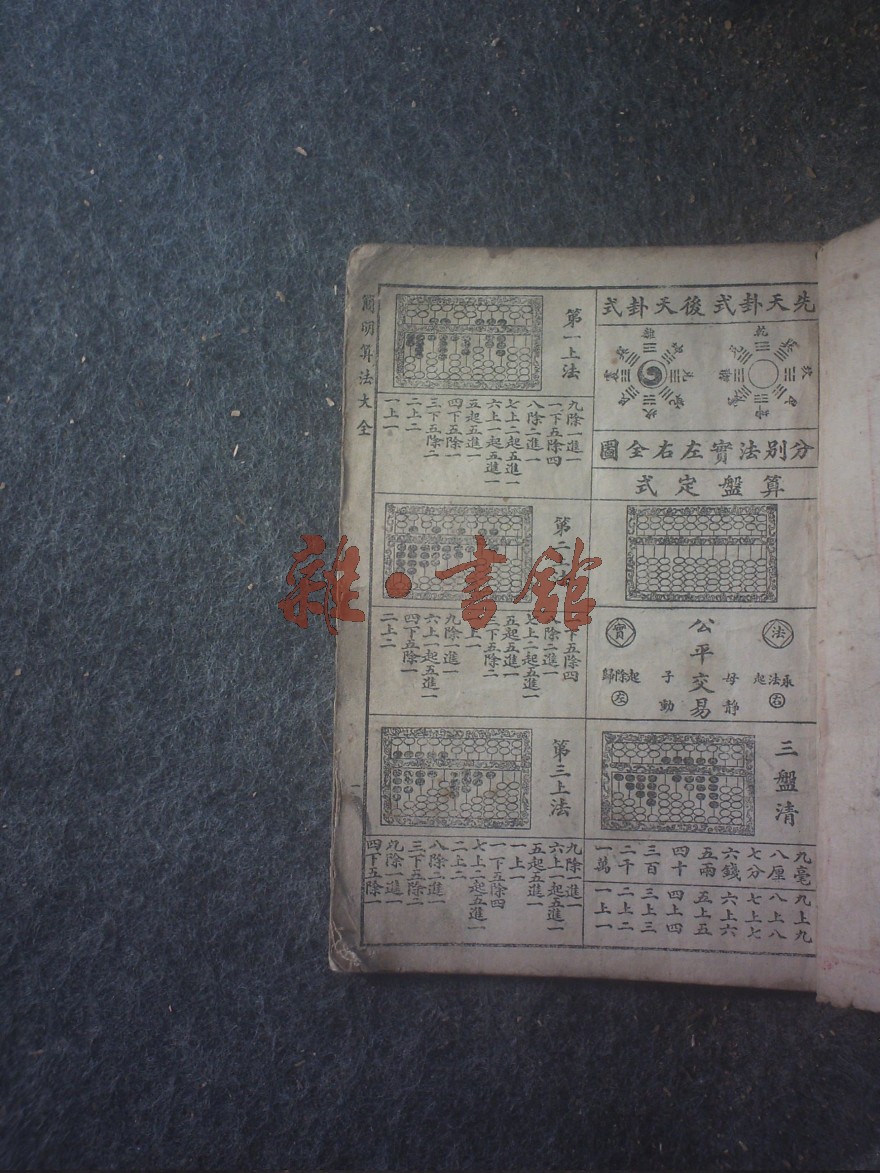 先天卦式後天卦式
乾
離
分別法實左右全圖
算盤定式
法
承法起
右
母靜
公平交易
子動
實
起除歸
左
三盤清
九毫
八厘
七分
六錢
五兩
四十
三百
二千
一萬
九上九
八上八
七上七
六上六
五上五
四上四
三上三
二上二
一上一
第一上法
九除一進一
一下五除四
八除二進一
七上二起五進一
六上一起五進一
五起五進一
四下五除一
三下五除二
二上二
一上一
第二
下五除四
除二進一
七上二起五進一
五起五進一
三下五除二
上一
九除一進一
六上一起五進一
四下五除一
二上二
第三上法
九除一進一
六上一起五進一
五起五進一
一上一
一下五除四
七上二起五進一
二上二
八除二進一
三下五除二
九除一進一
四下五除一
簡明算法大全
一
雜·書館